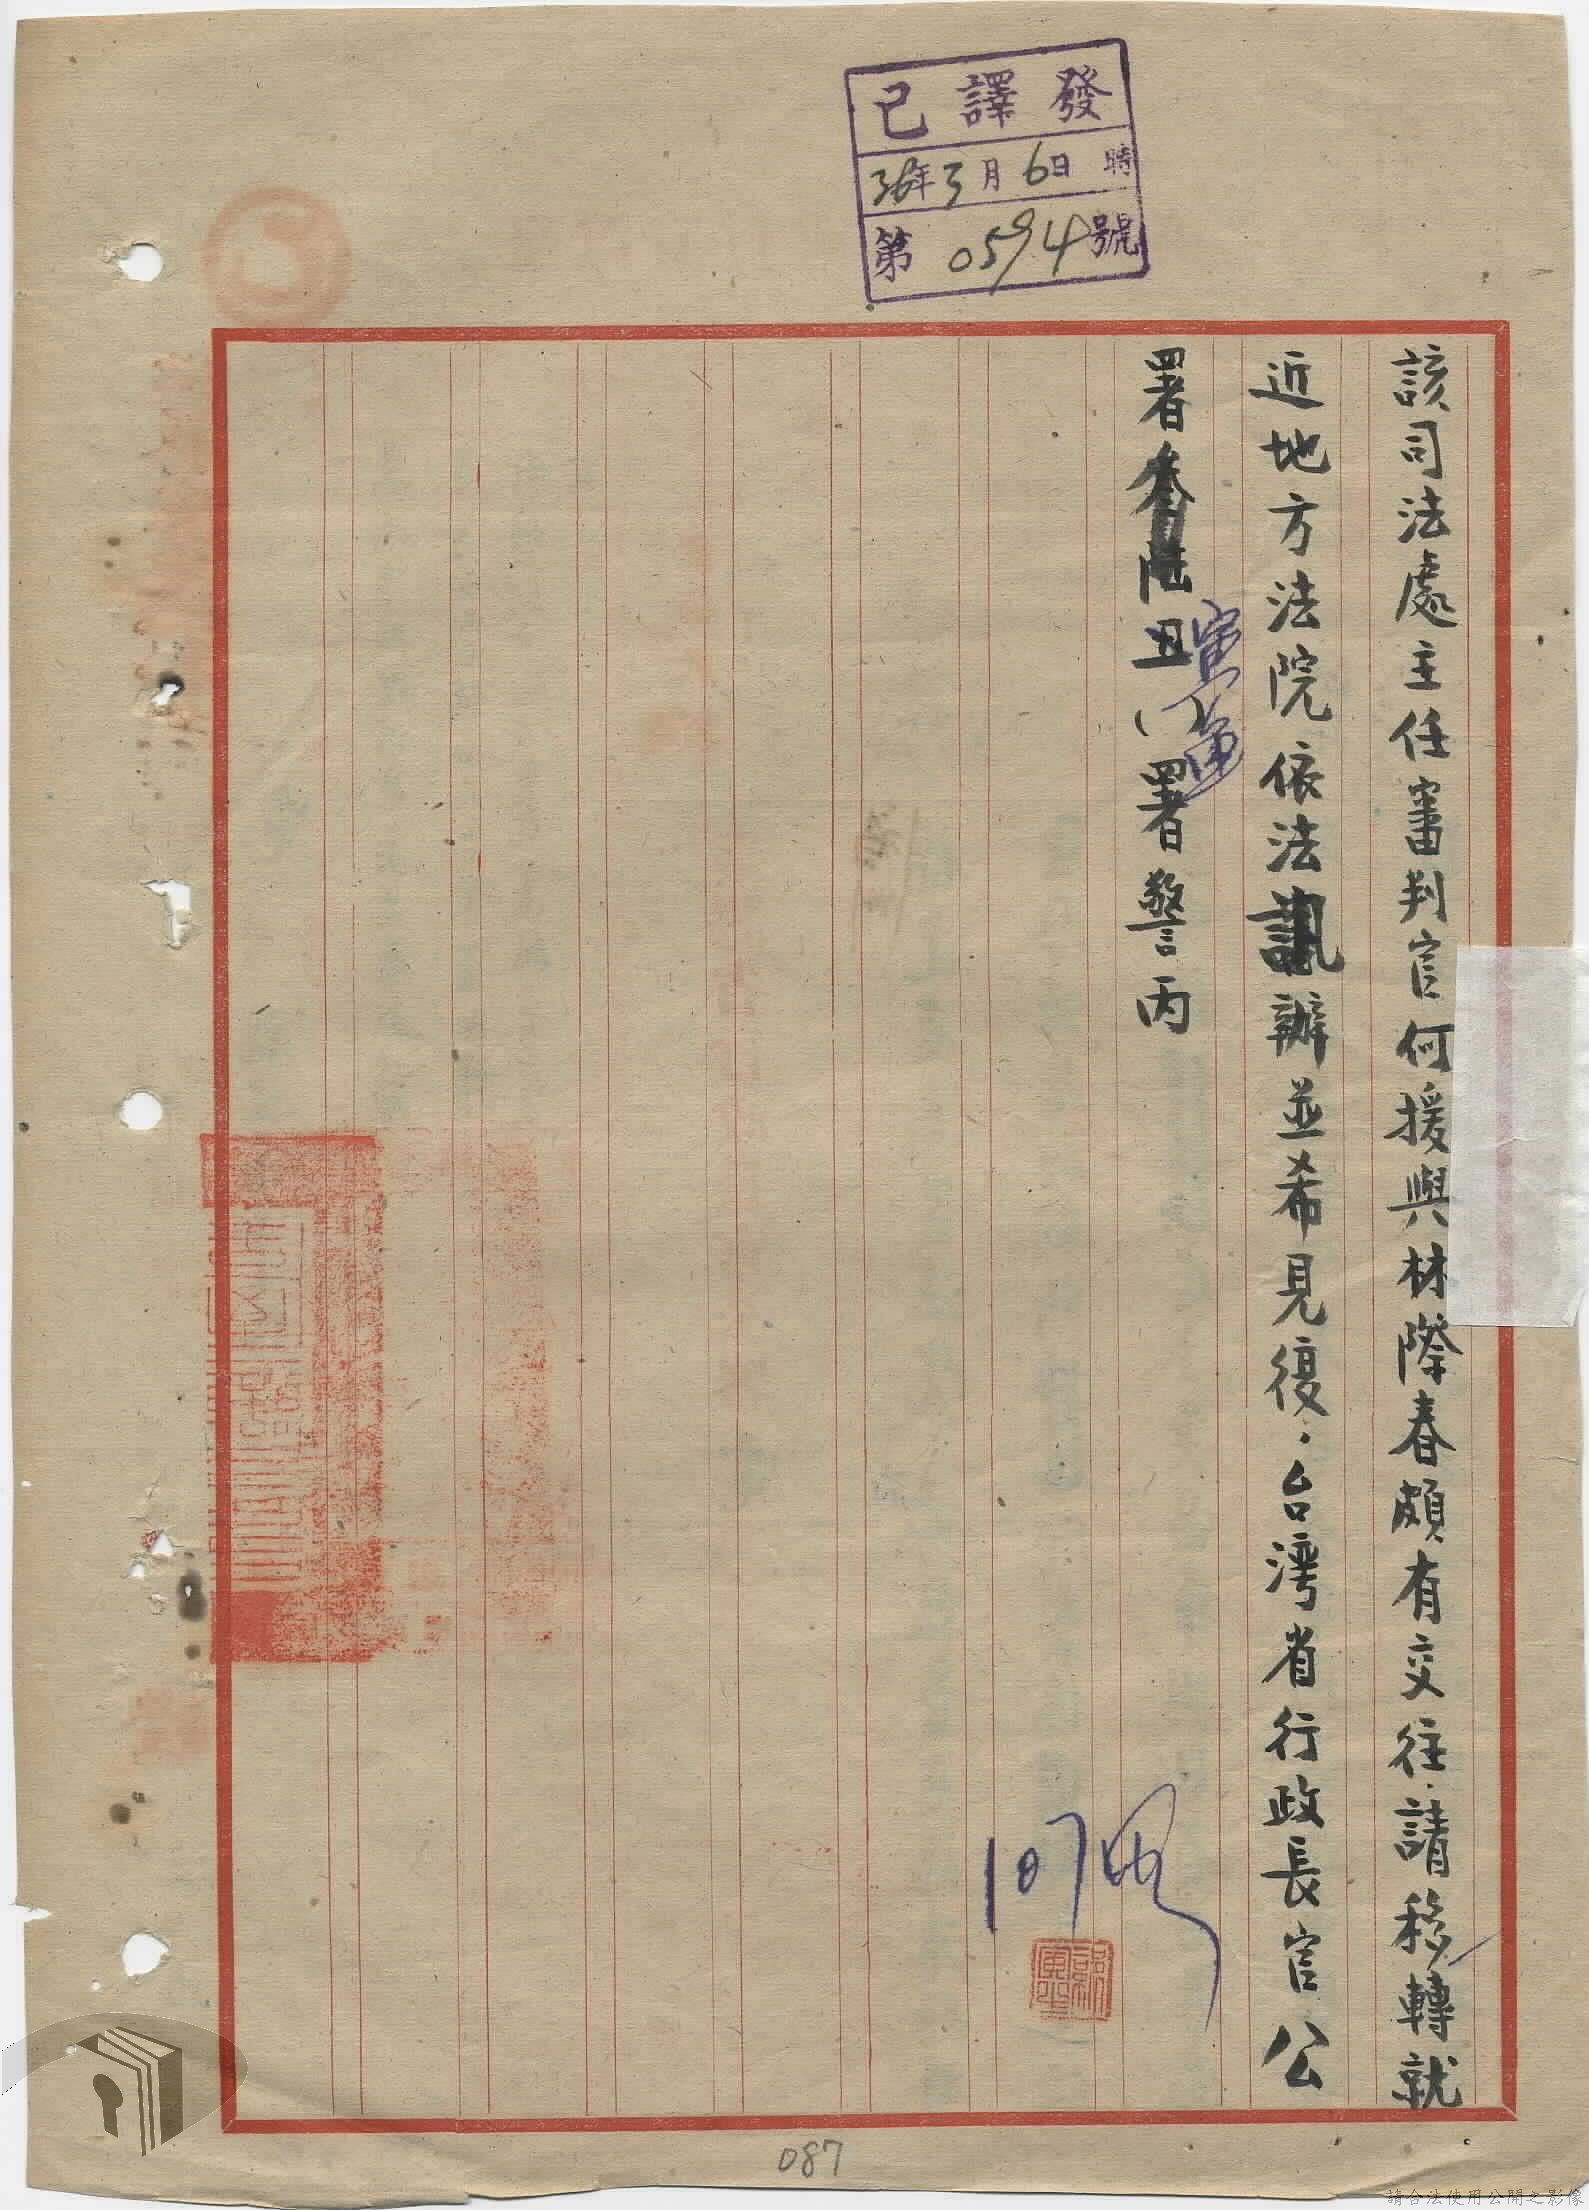 已譯發
36年3月6日 時
第0594號
該司法處主任審判官何援與林際春頗有交往.請移轉就
近地方法院依法訊辦並希見復.台灣省行政長官公
署叁陸丑
寅
署警丙
107
087
請合法使用公開之影像